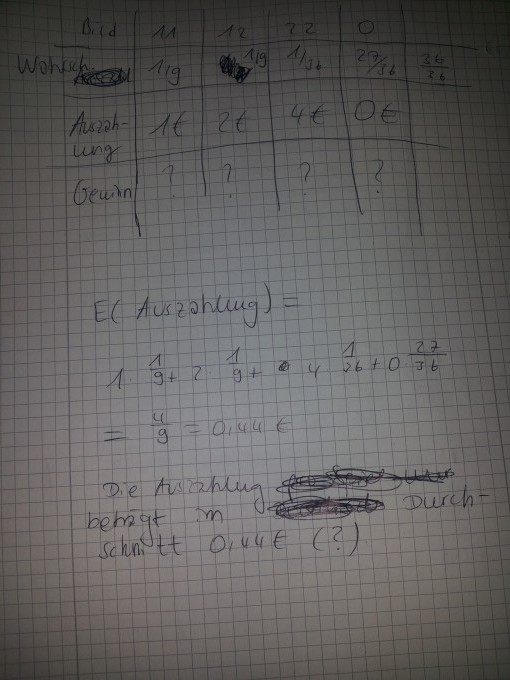 Bild 11 12 22 0
Wahrsch. 1/9 1/9 1/36 27/36 36/36
Auszah-
lung 1€ 2€ 4€ 0€
Gewinn ? ? ? ?
E( Auszahlung) =
1 · 1/9 + 2 · 1/9 + 4 1/36 + 0 27/36
= 4/9 = 0,44 €
Die Auszahlung
beträgt im Durch-
schnitt 0,44€ (?)